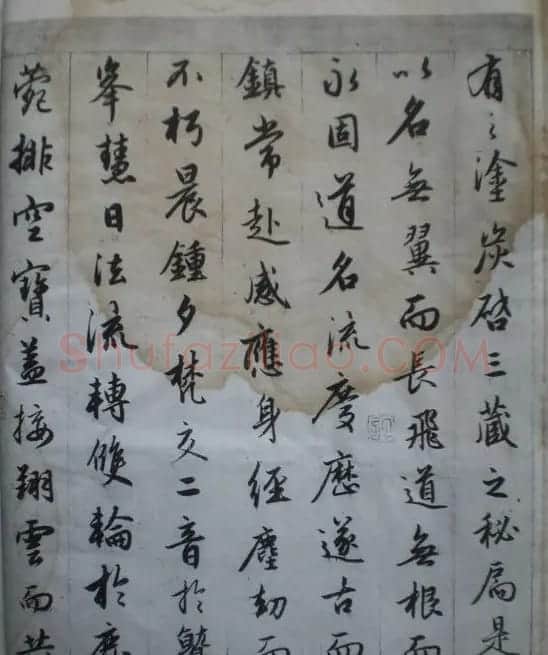 有之塗炭啓三藏之秘扃是
以名無翼而長飛道無根而
永固道名流慶歷遂古而
鎮常赴感應身經塵劫而
不朽晨鍾夕梵交二音於鷲
峯慧日法流轉雙輪於鹿
菀排空寶蓋接翔雲而共
Shufaziliao.COM